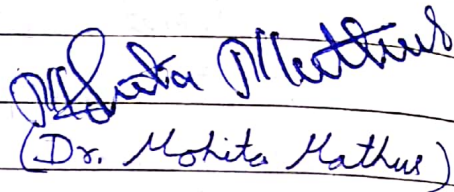 Mohita Mathur
(Dr. Mohita Mathur)